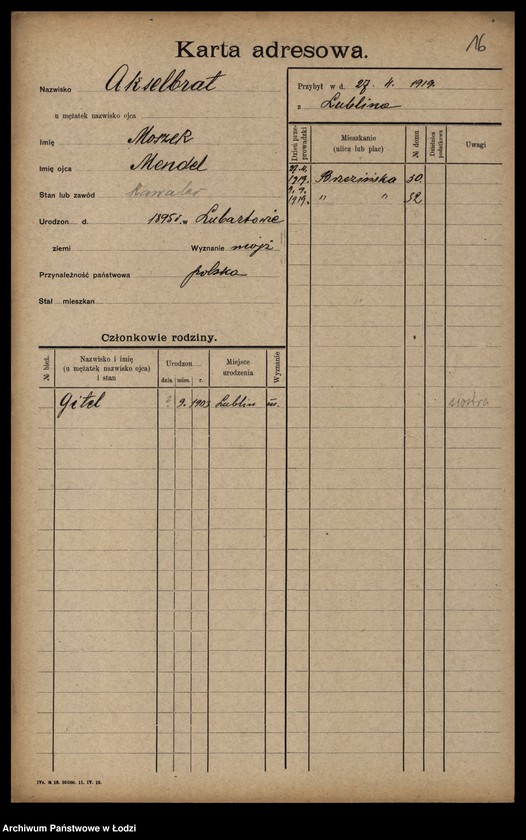 Karta adresowa.
16
Nazwisko Akselbrat
u mężatek nazwisko ojca
Imię Moszek
Imię ojca Mendel
Stan lub zawód Kowaler
Urodzon d. 1895 r. w Lubartowie
ziemi Wyznanie mojż
Przynależność państwowa polska
Stał mieszkan
Przybył w d. 27. 4. 1919.
z Lublina
Dzień przeprowadzki
Mieszkanie
(ulica lub plac)
№ domu
Dzielnica podatkowa
Uwagi
27.4. 1919. Brzezińska 30
9.7. 1919. " " 52
Członkowie rodziny.
№ bież.
Nazwisko i imię
(u mężatek nazwisko ojca)
i stan
Urodzon
dnia mies. r.
Miejsce
urodzenia
Wyznanie
Gitel 9. 1903 Lublin m. siostra
Archiwum Państwowe w Łodzi